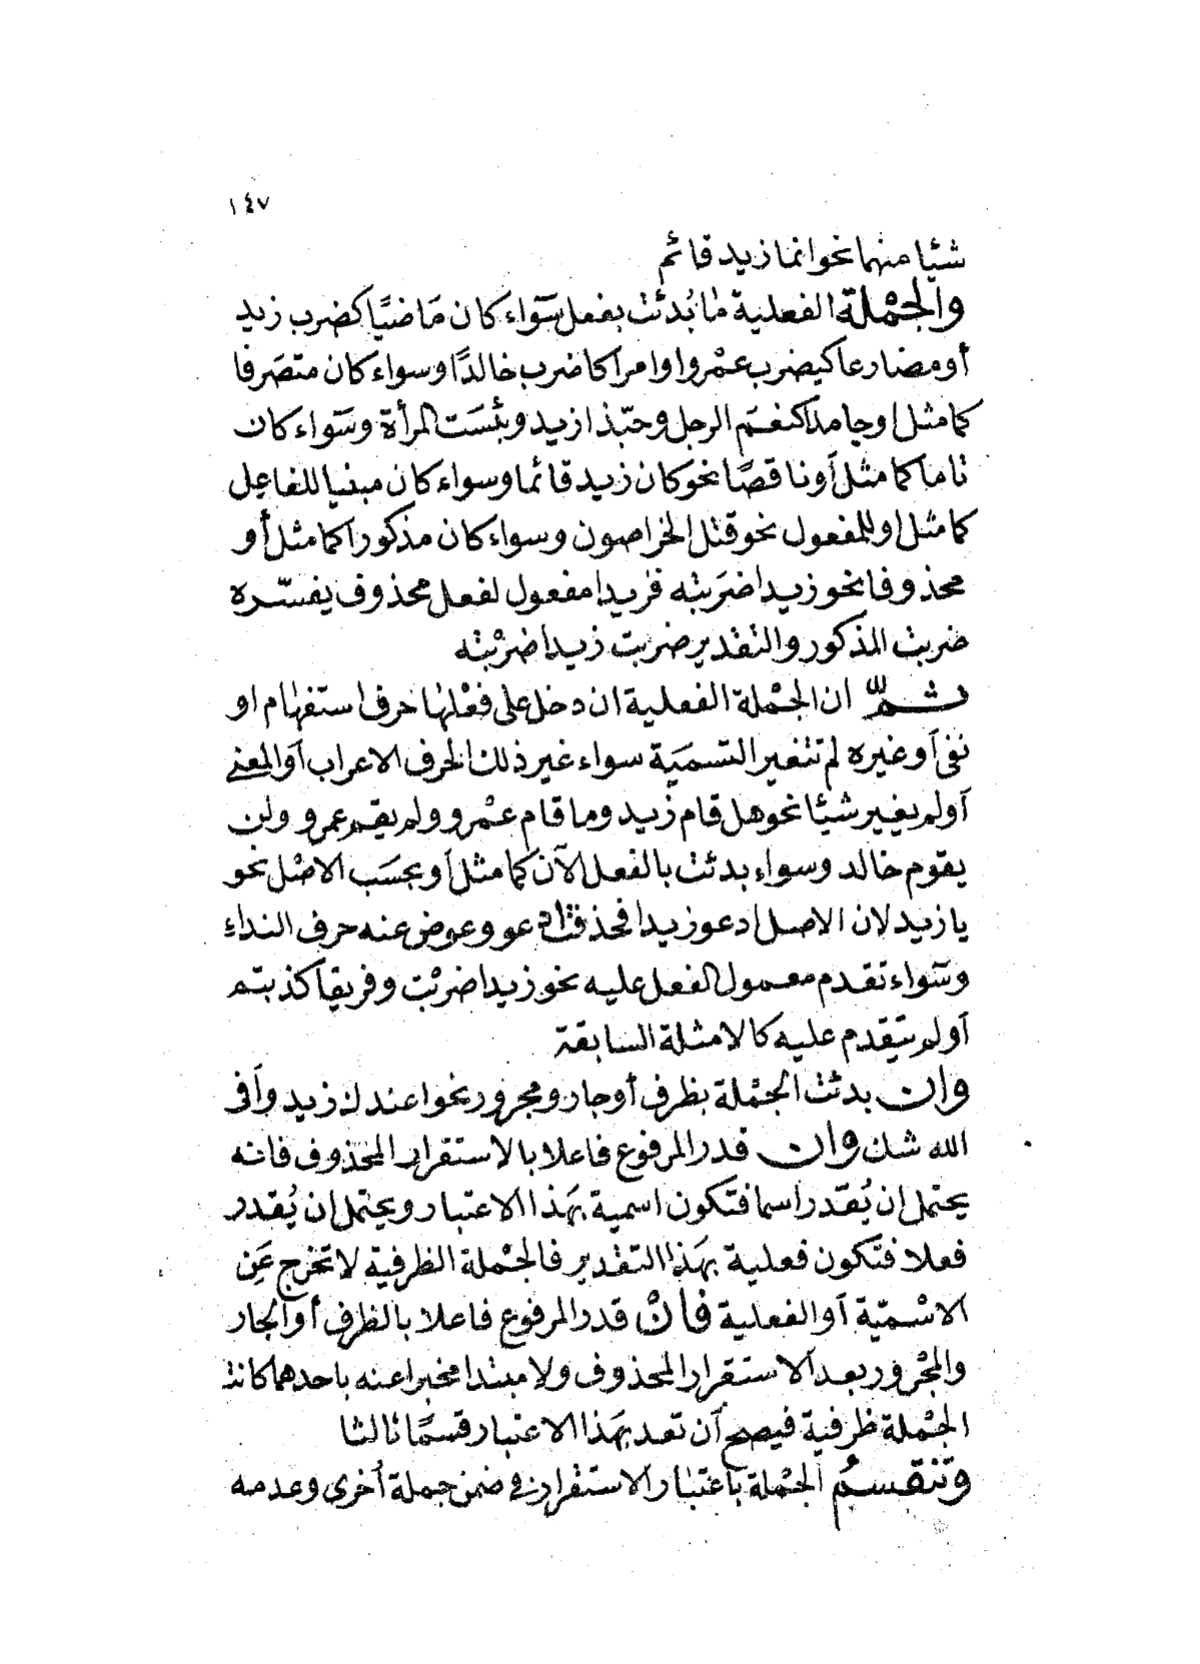 ١٤٧
شيئا منهما نحو انما زيد قائم
والجمْلة الفعلية مٰا بُدئت بفعل سَواء كان مَاضيًا كضرب زيد
أو مضارعا كيضرب عمْرو او امرا كاضرب خالدًا وسواء كان متصَرفا
كما مثل او جامدا كنعم الرجل وحبّذا زيد وبئسَت المرأة وسَواء كان
تاما كما مثل أو ناقصًا نحو كان زيد قائما وسواء كان مبنيا للفاعِل
كما مثل او للمفعول نحو قتل الخراصون وسواء كان مذكورا كما مثل أو
محذوفا نحو زيدا ضرَبته فزيدا مفعول لفعل محذوف يفسّره
ضربت المذكور والتقدير ضربت زيدا ضربْته
ثمّ ان الجمْلة الفعلية ان دخل على فعْلها حرف استفهام او
نفى أو غيره لم تتغير التسمَية سواء غير ذلك الحرف الاعراب أو المعنى
أو لم يغير شيئا نحو هل قام زيد وما قام عمْرو ولم يقم عمرو ولن
يقوم خالد وسواء بدئت بالفعل الآن كما مثل أو بحسَب الاصْل نحو
يا زيد لان الاصل ادعو زيدا فحذفت ادعو وعوض عنه حرف النداء
وسَواء تقدم معمول الفعل عليه نحو زيدا ضربْت وفريقا كذبتم
أو لم يتقدم عليه كالامثلة السابقة
وان بدئت الجمْلة بظرف أو جار ومجرور نحو اعندك زيد وأفى
الله شك وان قدر المرفوع فاعلا بالاستقرار المحذوف فانه
يحتمل ان يُقدّر اسما فتكون اسمية بهَذا الاعتبار ويحتمل ان يُقدر
فعلا فتكون فعلية بهَذا التقدير فالجمْلة الظرفية لا تخرج عَن
الاسْميّة أو الفعلية فانْ قدر المرفوع فاعلا بالظرف أو الجار
والمجْرور بعد الاستقرار المحذوف ولا مبتدا مخبرا عنه باحدهما كانت
الجمْلة ظرفية فيصح أن تعد بهَذا الاعتبار قسمًا ثالثا
وتنقسمُ الجمْلة باعتبار الاستقرار في ضمن جملة أخرى وعدمه